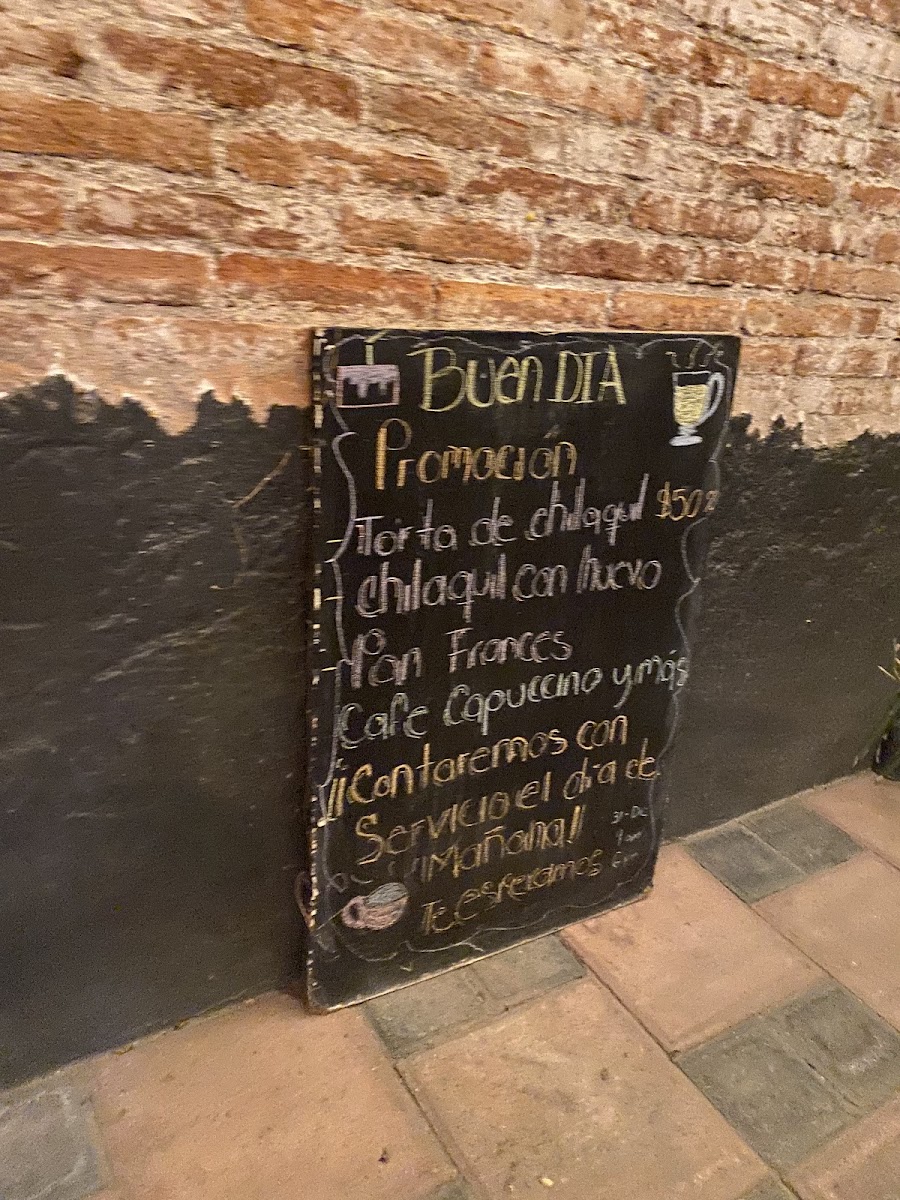 Buen DIA
Promoción
Torta de chilaquil $50
chilaquil con huevo
Pan Frances
Cafe Capuccino y más
¡¡Contaremos con
Servicio el día de
¡Mañana!!
Te esperamos
31-Dic